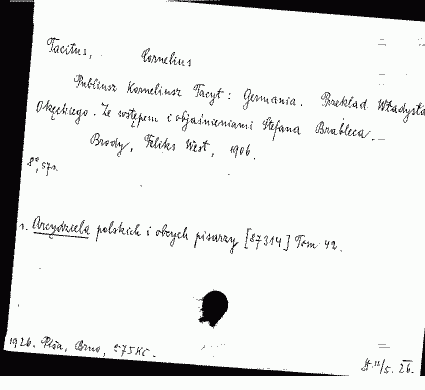 Tacitus, Cornelius
Publiusz Korneliusz Tacyt: Germania. Przekład Władysła
Okęckiego. Ze wstępem i objaśnieniami Stefana Brableca.
Brody, Feliks West, 1906.
8°, 57 s.
s. Arcydzieła polskich i obcych pisarzy [87314] Tom 42.
1926. Píša, Brno, 2·75 Kč.
11/5. 26.